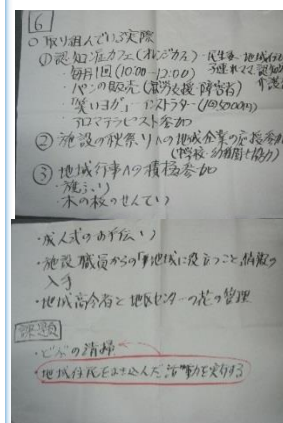 6
○取り組んでいる実際
① 認知症カフェ(オレンジカフェ)・民生委、地域住
子連れママ、認知
介護
・毎月1回(10:00~12:00)
・パンの販売(就労支援・障害者)
・笑いヨガ インストラクター(1回5000円)
・アロマテラピスト参加
② 施設の秋祭りへの地域企業の応援参加
(中学校・幼稚園も協力)
③ 地域行事への積極参加
・旗ふり
・木の枝のせんてい
・成人式のお手伝い
・施設職員からの 地域に役立つこと、情報の
入手
・地域高令者と地区センターの花の管理
課題
・どぶの清掃
・地域住民をまき込んだ活動を実行する